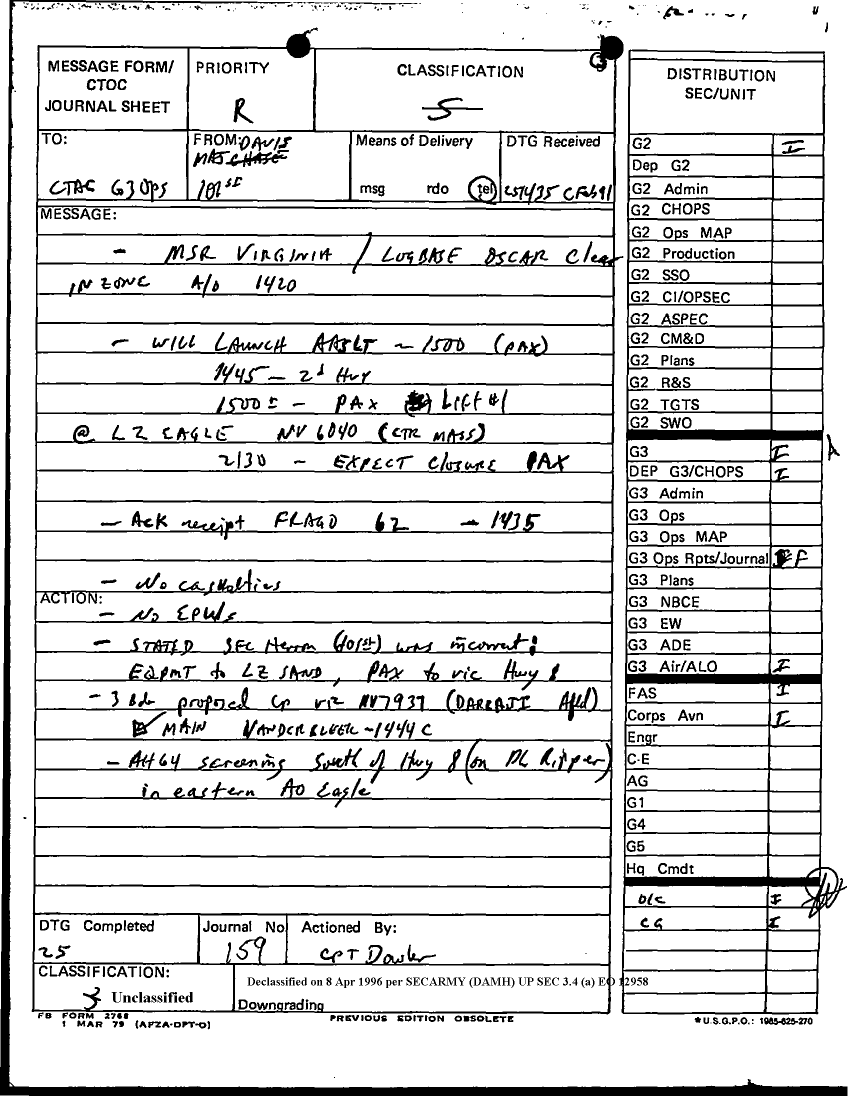 MESSAGE FORM/
CTOC
JOURNAL SHEET
PRIORITY
R
CLASSIFICATION
S
TO:
CTAC G3 OPS
FROM: DAVIS
MAJ CHASE
101st
Means of Delivery
msg rdo tel
DTG Received
251435 C Feb 91
MESSAGE:
- MSR VIRGINIA / LOGBASE OSCAR Clear
IN ZONE A/O 1420
- WILL LAUNCH AASLT ~ 1500 (PAX)
1445 - 2d Hvy
1500 ± - PAX Lift #1
@ LZ EAGLE NV 6040 (CTR MASS)
2130 - EXPECT Closure PAX
- Ack receipt FRAGO 62 - 1435
- No casualties
ACTION:
- No EPWs
- STATED SFC Herron (101st) was incorrect:
EQPMT to LZ SAND, PAX to vic Hwy 8
- 3 Bde proposed CP vic NV7937 (DARRAJI Afld)
MAIN VANDERBLEEK - 1444 C
- AH64 screening South of Hwy 8 (on PL Ripper)
in eastern AO Eagle
DTG Completed
25
Journal No
159
Actioned By:
CPT
CLASSIFICATION:
Unclassified
Declassified on 8 Apr 1996 per SECARMY (DAMH) UP SEC 3.4 (a) EO 12958
Downgrading
FB FORM 2768
1 MAR 79 (AFZA-DPT-O)
PREVIOUS EDITION OBSOLETE
DISTRIBUTION
SEC/UNIT
G2 I
Dep G2
G2 Admin
G2 CHOPS
G2 Ops MAP
G2 Production
G2 SSO
G2 CI/OPSEC
G2 ASPEC
G2 CM&D
G2 Plans
G2 R&S
G2 TGTS
G2 SWO
G3 I
DEP G3/CHOPS I
G3 Admin
G3 Ops
G3 Ops MAP
G3 Ops Rpts/Journal F
G3 Plans
G3 NBCE
G3 EW
G3 ADE
G3 Air/ALO I
FAS I
Corps Avn I
Engr
C-E
AG
G1
G4
G5
Hq Cmdt
I
CG I
*U.S.G.P.O.: 1985-625-270